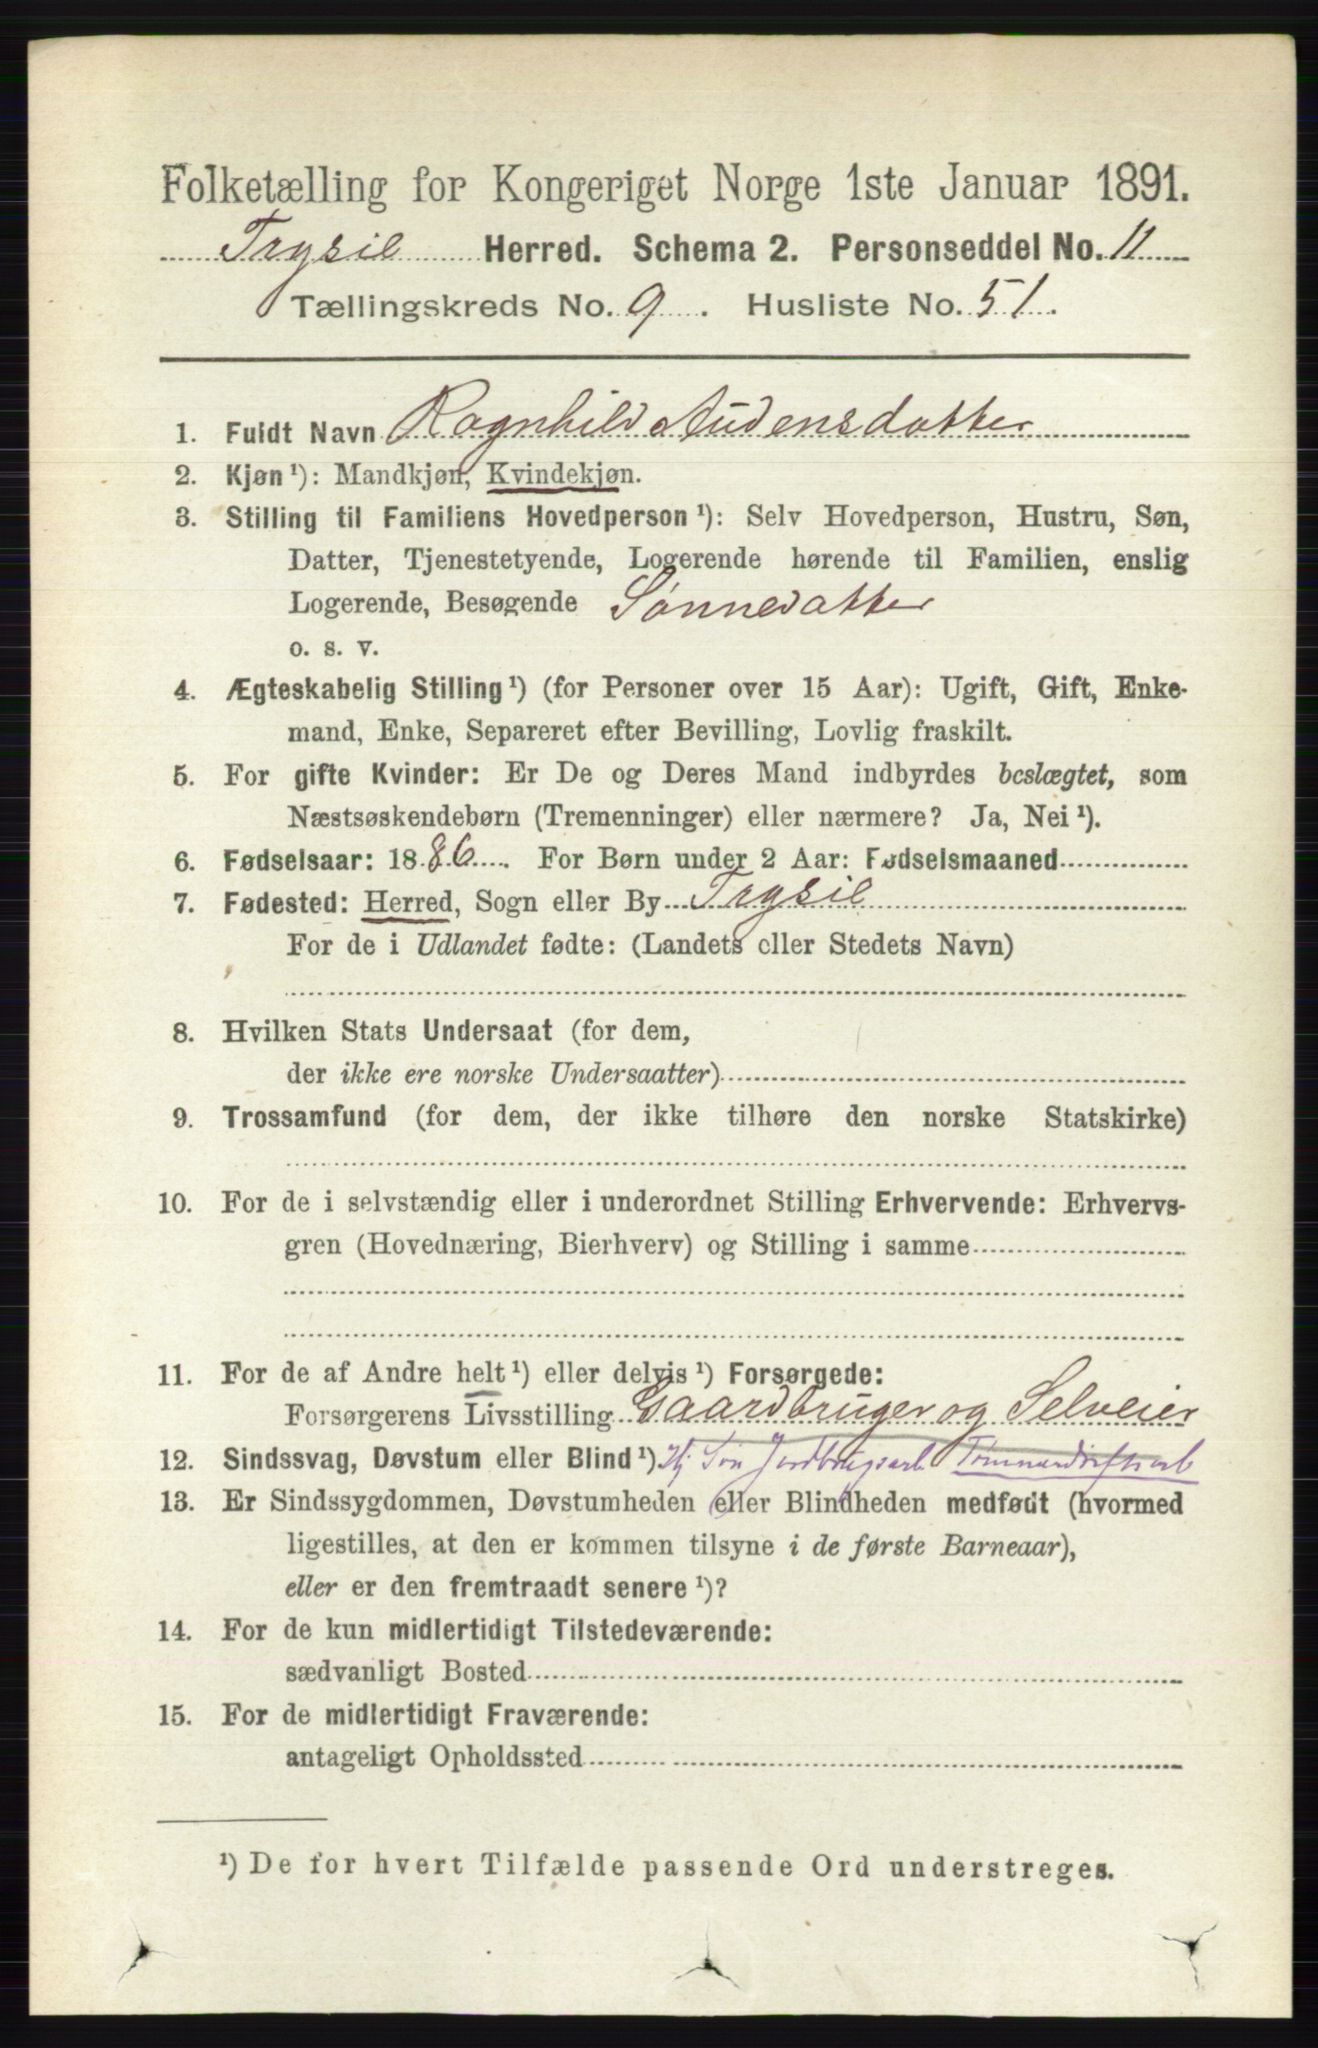 Folketælling for Kongeriget Norge 1ste Januar 1891.
Trysil Herred. Schema 2. Personseddel No. 11
Tællingskreds No. 9. Husliste No. 51.
1. Fuldt Navn Ragnhild Audensdatter
2. Kjøn ¹): Mandkjøn, Kvindekjøn.
3. Stilling til Familiens Hovedperson ¹): Selv Hovedperson, Hustru, Søn,
Datter, Tjenestetyende, Logerende hørende til Familien, enslig
Logerende, Besøgende Sønnedatter
o. s. v.
4. Ægteskabelig Stilling ¹) (for Personer over 15 Aar): Ugift, Gift, Enke-
mand, Enke, Separeret efter Bevilling, Lovlig fraskilt.
5. For gifte Kvinder: Er De og Deres Mand indbyrdes beslægtet, som
Næstsøskendebørn (Tremenninger) eller nærmere? Ja, Nei ¹).
6. Fødselsaar: 1886. For Børn under 2 Aar: Fødselsmaaned
7. Fødested: Herred, Sogn eller By Trysil
For de i Udlandet fødte: (Landets eller Stedets Navn)
8. Hvilken Stats Undersaat (for dem,
der ikke ere norske Undersaatter)
9. Trossamfund (for dem, der ikke tilhøre den norske Statskirke)
10. For de i selvstændig eller i underordnet Stilling Erhvervende: Erhvervs-
gren (Hovednæring, Bierhverv) og Stilling i samme
11. For de af Andre helt ¹) eller delvis ¹) Forsørgede:
Forsørgerens Livsstilling Gaardbruger og Selveier
12. Sindssvag, Døvstum eller Blind ¹) Hj Søn Jordbrugsarb
13. Er Sindssygdommen, Døvstumheden eller Blindheden medfødt (hvormed
ligestilles, at den er kommen tilsyne i de første Barneaar),
eller er den fremtraadt senere ¹)?
14. For de kun midlertidigt Tilstedeværende:
sædvanligt Bosted
15. For de midlertidigt Fraværende:
antageligt Opholdssted
¹) De for hvert Tilfælde passende Ord understreges.